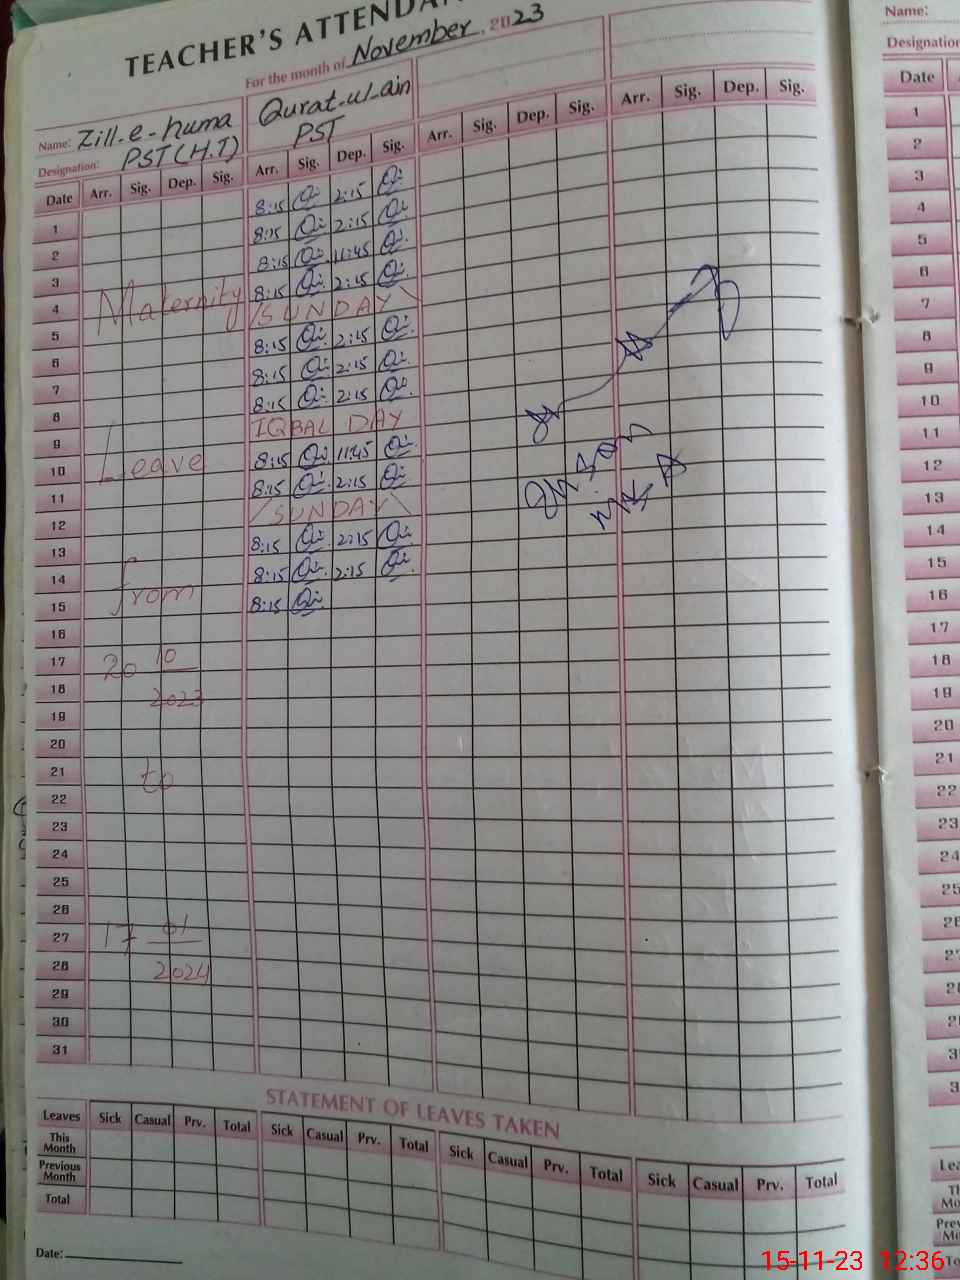 TEACHER'S
For the month of November. 2023
Name: Zill-e-huma Qurat-ul-ain
Designation: PST (H.T) PST
Date Arr. Sig. Dep. Sig. Arr. Sig. Dep. Sig. Arr. Sig. Dep. Sig. Arr. Sig. Dep. Sig.
1 8:15 2:15
2 8:15 2:15
3 8:15 11:45
4 8:15 2:15
Maternity
5 SUNDAY
6 8:15 2:15
7 8:15 2:15
8 8:15 2:15
9 IQBAL DAY
10 8:15 11:45
Leave
11 8:15 2:15
12 SUNDAY
13 8:15 2:15
14 8:15 2:15
15 8:15
from
16
17
20 10
18
2023
19
20
21
to
22
23
24
25
26
27
17 01
28
2024
29
30
31
STATEMENT OF LEAVES TAKEN
Leaves Sick Casual Prv. Total Sick Casual Prv. Total Sick Casual Prv. Total Sick Casual Prv. Total
This Month
Previous Month
Total
Date:
Name:
Designation
Date
1
2
3
4
5
6
7
8
9
10
11
12
13
14
15
16
17
18
19
20
21
22
23
24
15-11-23 12:36